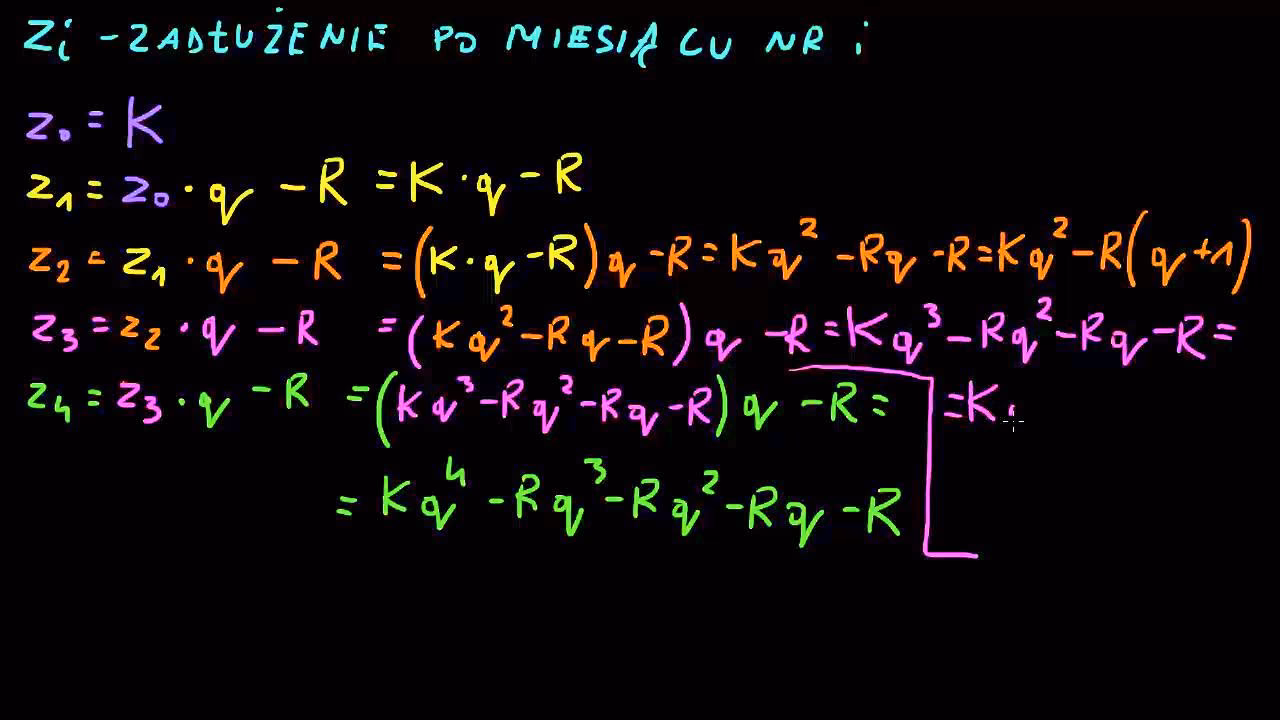 Zi - ZADŁUŻENIE PO MIESIĄCU NR i
z₀ = K
z₁ = z₀ · q - R = K · q - R
z₂ = z₁ · q - R = (K · q - R) q - R = Kq² - Rq - R = Kq² - R(q + 1)
z₃ = z₂ · q - R = (Kq² - Rq - R) q - R = Kq³ - Rq² - Rq - R =
= K ·
z₄ = z₃ · q - R = (Kq³ - Rq² - Rq - R) q - R =
= Kq⁴ - Rq³ - Rq² - Rq - R